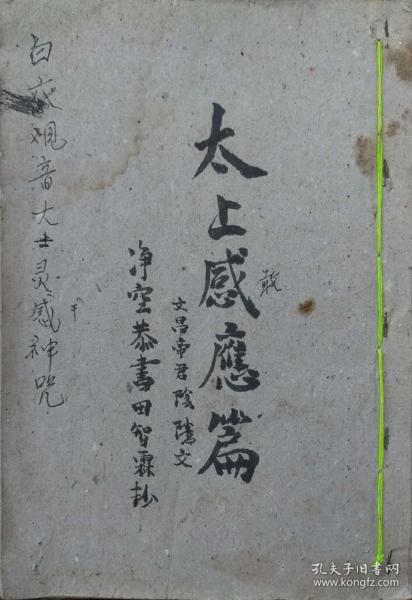 太上感應篇
文昌帝君陰隲文
净空恭書田智霖抄
白衣观音大士灵感神咒
孔夫子旧书网
www.kongfz.com